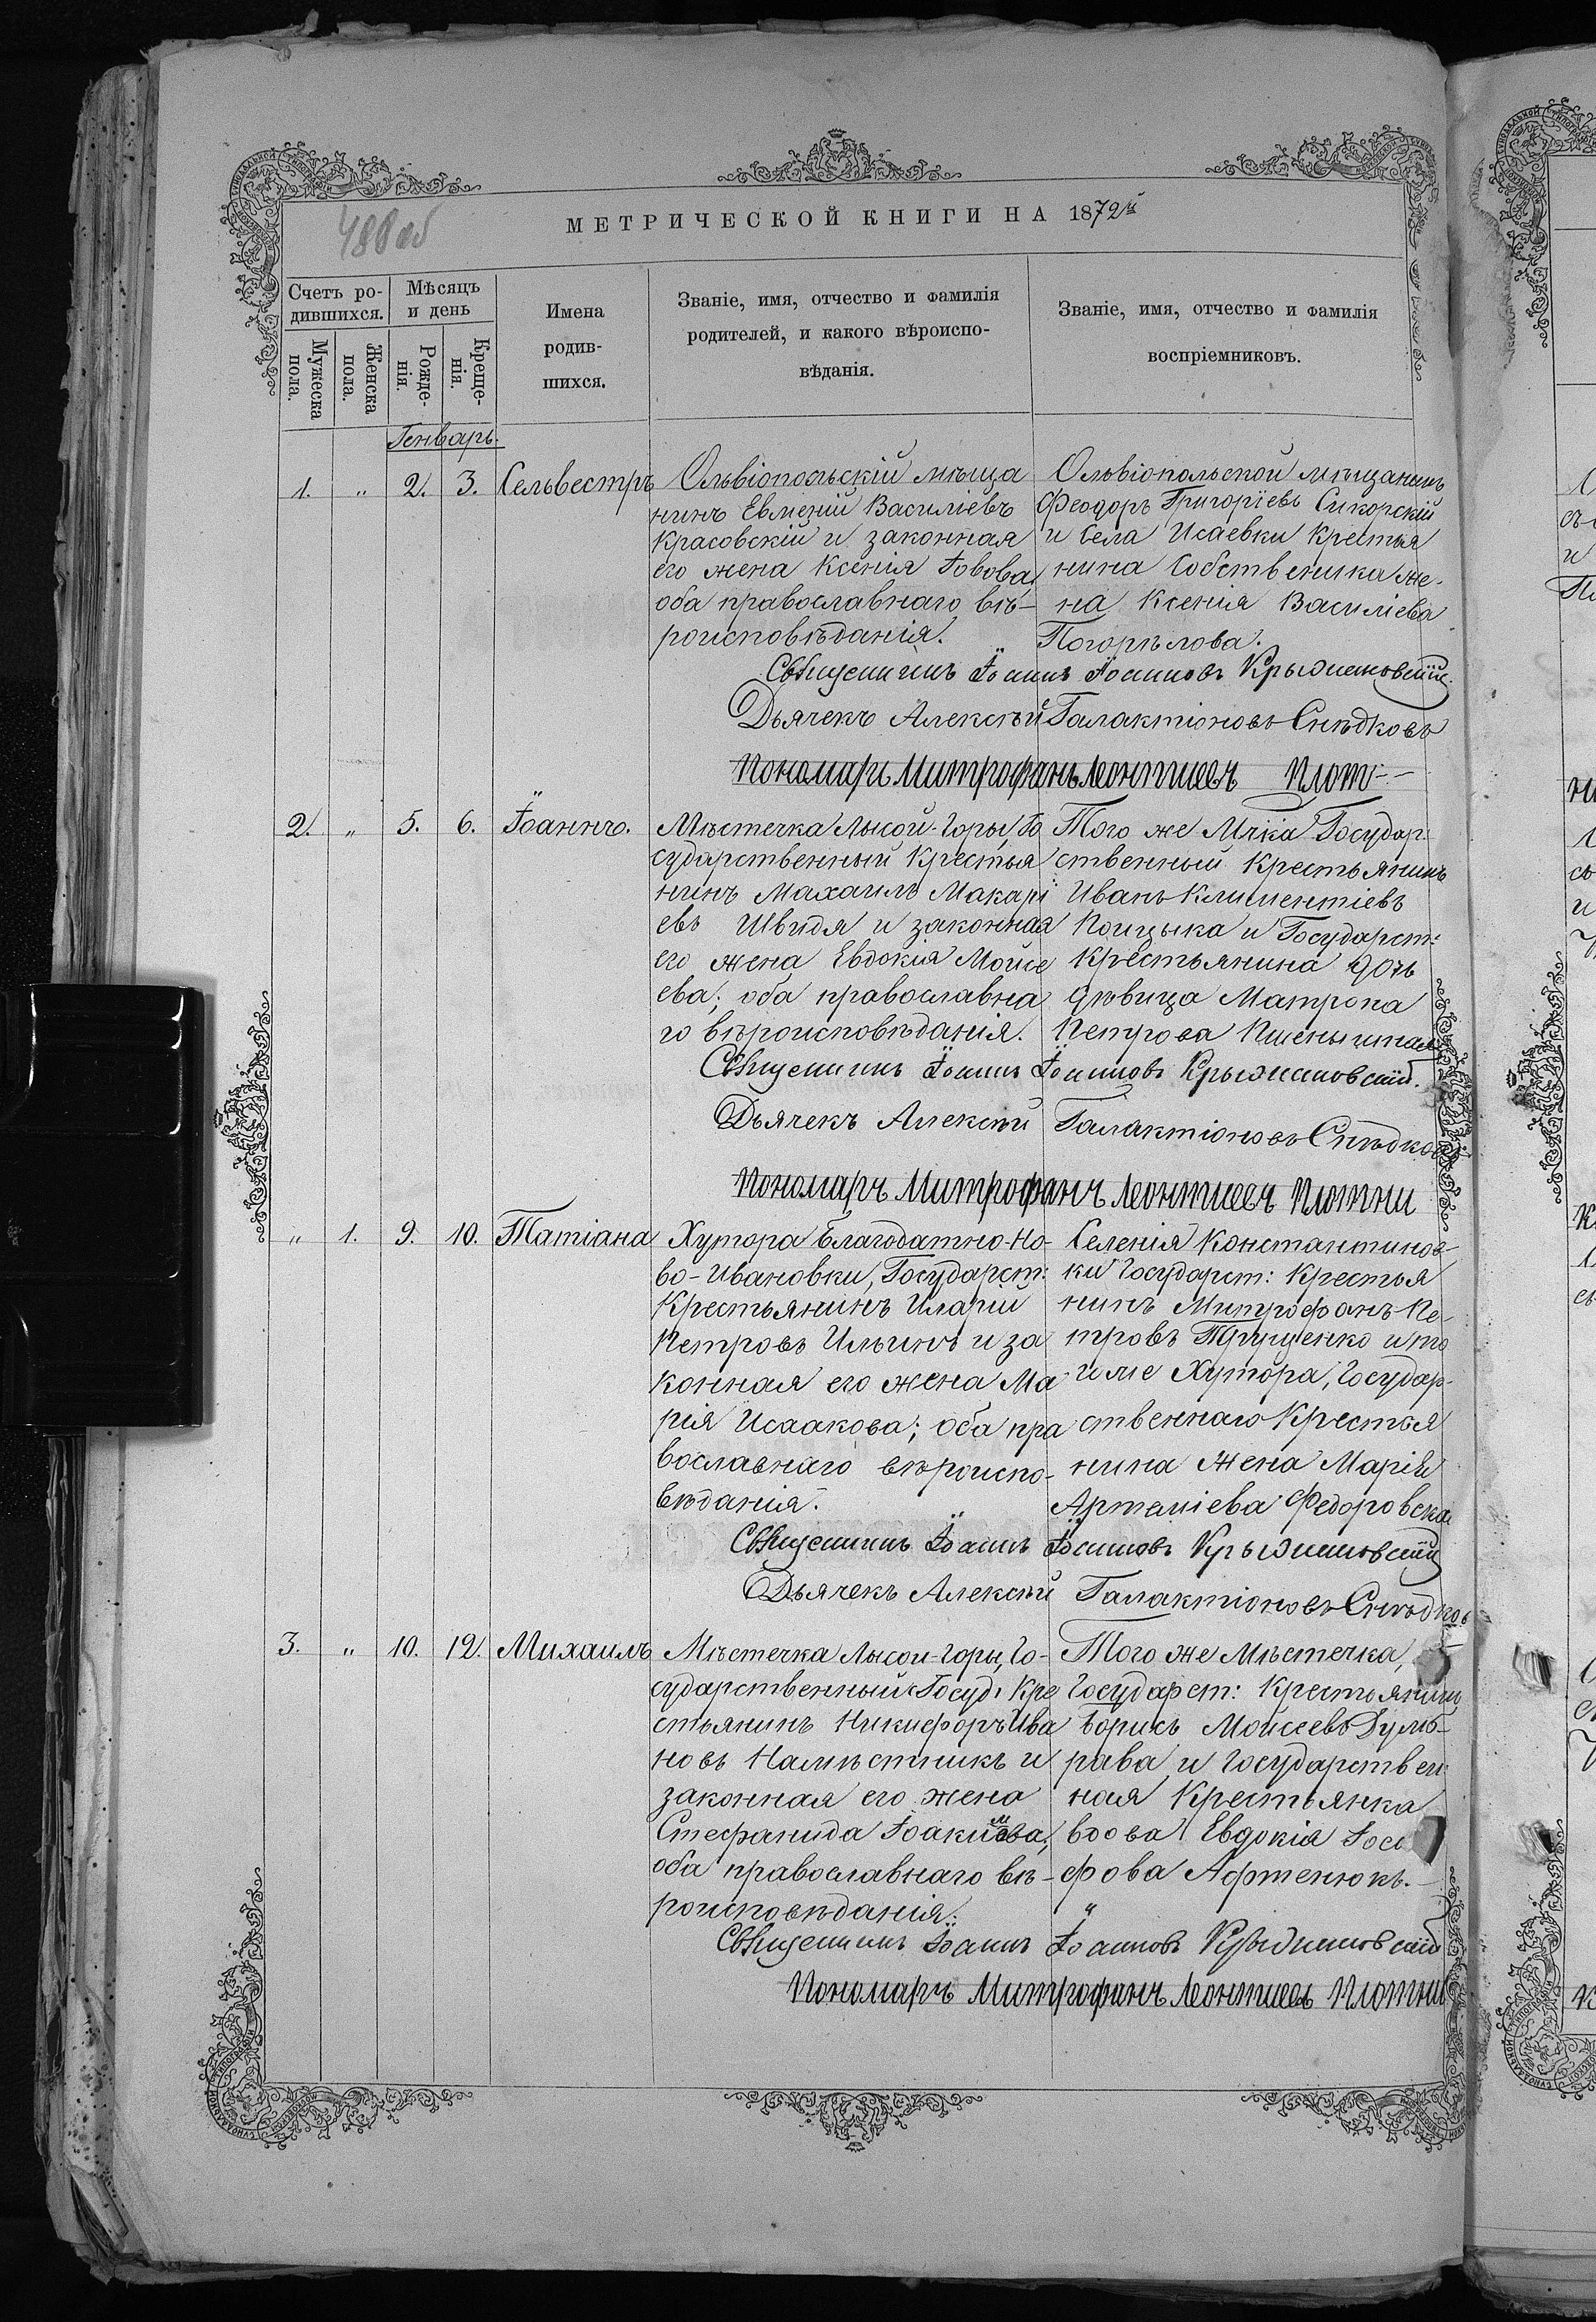 488 об
МЕТРИЧЕСКОЙ КНИГИ НА 1872й
Счетъ ро-
дившихся.
Мѣсяцъ
и день
Имена
родив-
шихся.
Званіе, имя, отчество и фамилія
родителей, и какого вѣроиспо-
вѣданія.
Званіе, имя, отчество и фамилія
воспріемниковъ.
Мужеска
пола.
Женска
пола.
Рожде-
нія.
Креще-
нія.
Генварь.
1. " 2. 3. Сельвестръ
Ольвіопольскій мѣща
нинъ Евменій Василіевъ
Красовскій и законная
его жена Ксенія Іовова,
оба православнаго вѣ-
роисповѣданія.
Ольвіопольской мѣщанинъ
Феодоръ Григоріевъ Сикорскій
и Села Исаевки Крестья
нина Собственика же-
на Ксенія Василіева
Погорѣлова.
Священникъ Іоаннъ Іоанновъ Крыжановскій.
Дьячекъ Алексѣй Галактіоновъ Снѣдковъ
Пономарь Митрофанъ Леонтиевъ Плот--
2. " 5. 6. Іоаннъ.
Мѣстечка Лысой-Горы, Го
сударственный Крестья
нинъ Махаилъ Макарі
евъ Швидя и законная
его жена Евдокія Мойсе
ева; оба православна
го вѣроисповѣданія.
Того же М-чка Государ
ственный Крестьянинъ
Иванъ Климентіевъ
и Государст:
Крестьянина дочь
дѣвица Матрона
Петрова
Священникъ Іоаннъ Іоанновъ Крыжановскій.
Дьячекъ Алексѣй Галактіоновъ Снѣдковъ
Пономаръ Митрофанъ Леонтиевъ Плотни
" 1. 9. 10. Татіана
Хутора Благодатно-Но-
во-Ивановки, Государст:
Крестьянинъ Иларій
Петровъ Ильинъ и за
конная его жена Ма
рія Исаакова; оба пра
вославнаго вѣроиспо-
вѣданія.
Селенія Константинов-
ки Государст: Крестья
нинъ Митрофанъ Пе-
тровъ Трущенко и то
гоже Хутора, Государ-
ственнаго Крестья
нина Жена Марія
Артеміева Федоровска
Священникъ Іоаннъ Іоанновъ Крыжановскій
Дьячекъ Алексѣй Галактіоновъ Снѣдков
3. " 10. 12. Михаилъ
Мѣстечка Лысой-Горы, Го-
сударственный Госуд: Кре
стьянинъ Никифоръ Ива
новъ Намѣстникъ и
законная его жена
Стефанида Іоакимова,
оба православнаго вѣ-
роисповѣданія.
Того же Мѣстечка,
Государст: Крестьянинъ
Борисъ Мойсеевъ Думб-
рава и Государствен
ная Крестьянка
вдова Евдокія Іоси
фова Афтенюкъ.
"
Священникъ Іоаннъ Іоанновъ Крыжановскій
Пономаръ Митрофанъ Леонтиевъ Плотни